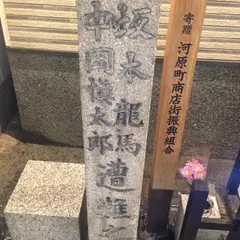 坂本龍馬
中岡慎太郎
遭難之
寄贈 河原町商店街振興組合